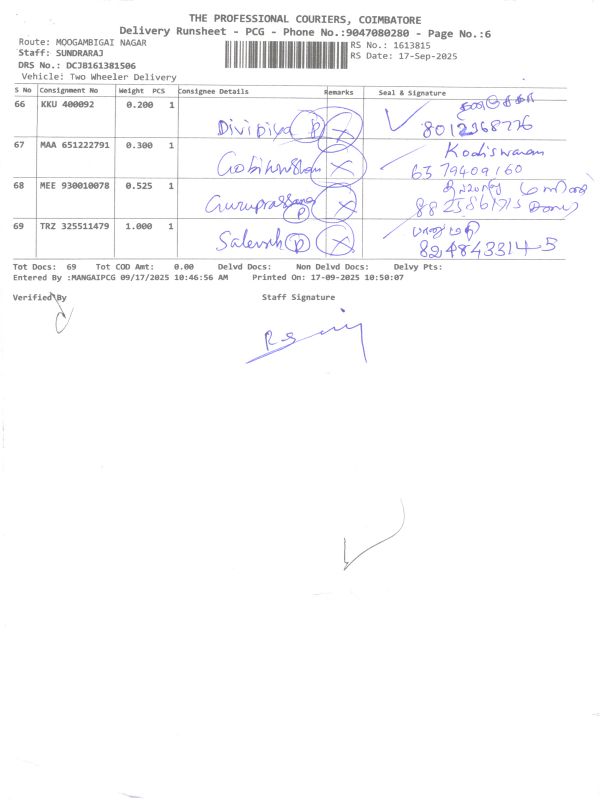 THE PROFESSIONAL COURIERS, COIMBATORE
Delivery Runsheet - PCG - Phone No.:9047080280 - Page No.:6
Route: MOOGAMBIGAI NAGAR
RS No.: 1613815
Staff: SUNDRARAJ
RS Date: 17-Sep-2025
DRS No.: DCJB161381506
Vehicle: Two Wheeler Delivery
S No Consignment No Weight PCS Consignee Details Remarks Seal & Signature
66 KKU 400092 0.200 1
Divipiya P X 8012368776
67 MAA 651222791 0.300 1 Kodiswaran
X 6379409160
68 MEE 930010078 0.525 1
P X
69 TRZ 325511479 1.000 1 பானுமதி
P X 8248433145
Tot Docs: 69 Tot COD Amt: 0.00 Delvd Docs: Non Delvd Docs: Delvy Pts:
Entered By :MANGAIPCG 09/17/2025 10:46:56 AM Printed On: 17-09-2025 10:50:07
Verified By Staff Signature